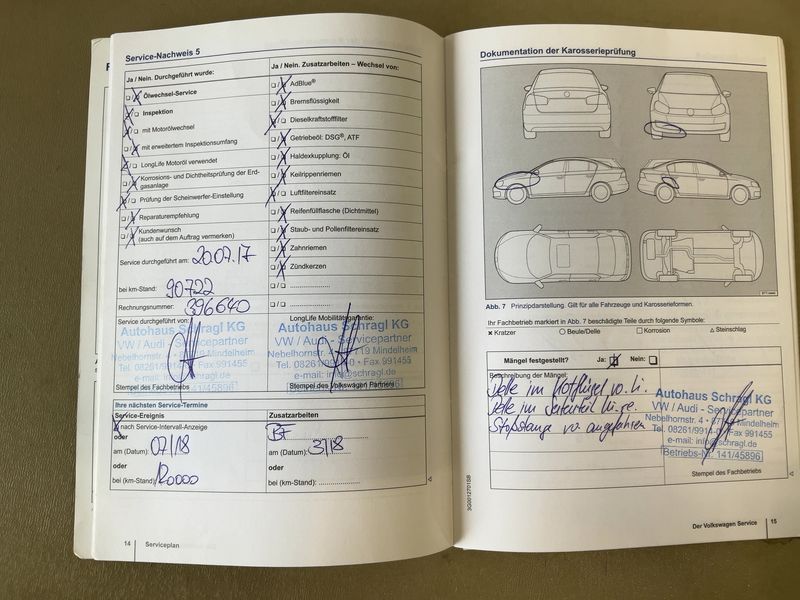 Service-Nachweis 5
Ja / Nein. Durchgeführt wurde:
Ölwechsel-Service
Inspektion
mit Motorölwechsel
mit erweitertem Inspektionsumfang
LongLife Motoröl verwendet
Korrosions- und Dichtheitsprüfung der Erd-
gasanlage
Prüfung der Scheinwerfer-Einstellung
Reparaturempfehlung
Kundenwunsch
(auch auf dem Auftrag vermerken)
Service durchgeführt am: 20.07.17
bei km-Stand: 90722
Rechnungsnummer: 396640
Service durchgeführt von:
Autohaus Schragl KG
VW / Audi - Servicepartner
Nebelhornstr. 4 • 87719 Mindelheim
Tel. 08261/9914-0 • Fax 991455
e-mail: info@schragl.de
Betriebs-Nr. 141/45896
Stempel des Fachbetriebs
Ja / Nein. Zusatzarbeiten – Wechsel von:
AdBlue®
Bremsflüssigkeit
Dieselkraftstofffilter
Getriebeöl: DSG®, ATF
Haldexkupplung: Öl
Keilrippenriemen
Luftfiltereinsatz
Reifenfüllflasche (Dichtmittel)
Staub- und Pollenfiltereinsatz
Zahnriemen
Zündkerzen
LongLife Mobilitätsgarantie:
Autohaus Schragl KG
VW / Audi - Servicepartner
Nebelhornstr. 4 • 87719 Mindelheim
Tel. 08261/9914-0 • Fax 991455
e-mail: info@schragl.de
Betriebs-Nr. 141/45896
Stempel des Volkswagen Partners
Ihre nächsten Service-Termine
Service-Ereignis
nach Service-Intervall-Anzeige
oder
am (Datum): 07/18
oder
bei (km-Stand): 120000
Zusatzarbeiten
BF
am (Datum): 3/18
oder
bei (km-Stand):
14 Serviceplan
Dokumentation der Karosserieprüfung
Abb. 7 Prinzipdarstellung. Gilt für alle Fahrzeuge und Karosserieformen.
Ihr Fachbetrieb markiert in Abb. 7 beschädigte Teile durch folgende Symbole:
× Kratzer ○ Beule/Delle □ Korrosion △ Steinschlag
Mängel festgestellt? Ja: Nein:
Beschreibung der Mängel:
Delle im Kotflügel vo. li.
Delle im Seitenteil hi. re.
Stoßstange vo. angefahren
Autohaus Schragl KG
VW / Audi - Servicepartner
Nebelhornstr. 4 • 87719 Mindelheim
Tel. 08261/9914-0 • Fax 991455
e-mail: info@schragl.de
Betriebs-Nr. 141/45896
Stempel des Fachbetriebs
3G0012701SB
Der Volkswagen Service 15